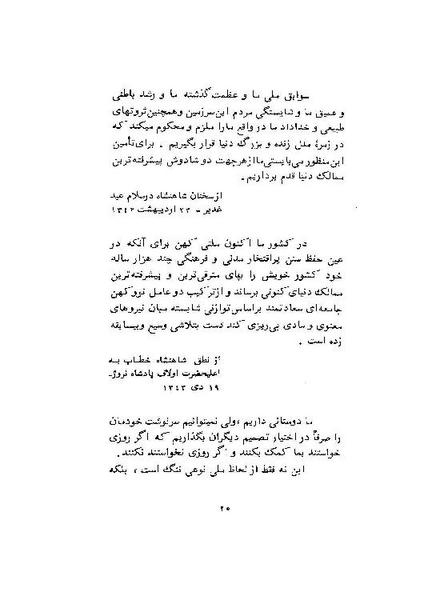 سوابق ملی ما و عظمت گذشته ما و رشد باطنی
و عمیق ما و شایستگی مردم این سرزمین و همچنین ثروتهای
طبیعی و خداداد ما در واقع ما را ملزم و محکوم میکند که
در زمرهٔ ملل زنده و بزرگ دنیا قرار بگیریم . برای تأمین
این منظور می بایستی ما از هر جهت دوشادوش پیشرفته ترین
ممالک دنیا قدم برداریم .
از سخنان شاهنشاه در سلام عید
غدیر - ۲۳ اردیبهشت ۱۳۴۲
در کشور ما اکنون ملتی کهن برای آنکه در
عین حفظ سنن پرافتخار مدنی و فرهنگی چند هزار ساله
خود کشور خویش را بپای مترقی ترین و پیشرفته ترین
ممالک دنیای کنونی برساند و از ترکیب دو عامل نو و کهن
جامعه ای سعادتمند براساس توازنی شایسته میان نیروهای
معنوی و مادی پی ریزی کند دست بتلاشی وسیع و بیسابقه
زده است .
از نطق شاهنشاه خطاب به
اعلیحضرت اولاف پادشاه نروژ -
۱۹ دی ۱۳۴۳
ما دوستانی داریم ، ولی نمیتوانیم سرنوشت خودمان
را صرفاً در اختیار تصمیم دیگران بگذاریم که اگر روزی
خواستند بما کمک بکنند و اگر روزی نخواستند نکنند .
این نه فقط از لحاظ ملی نوعی ننگ است ، بلکه
۲۵